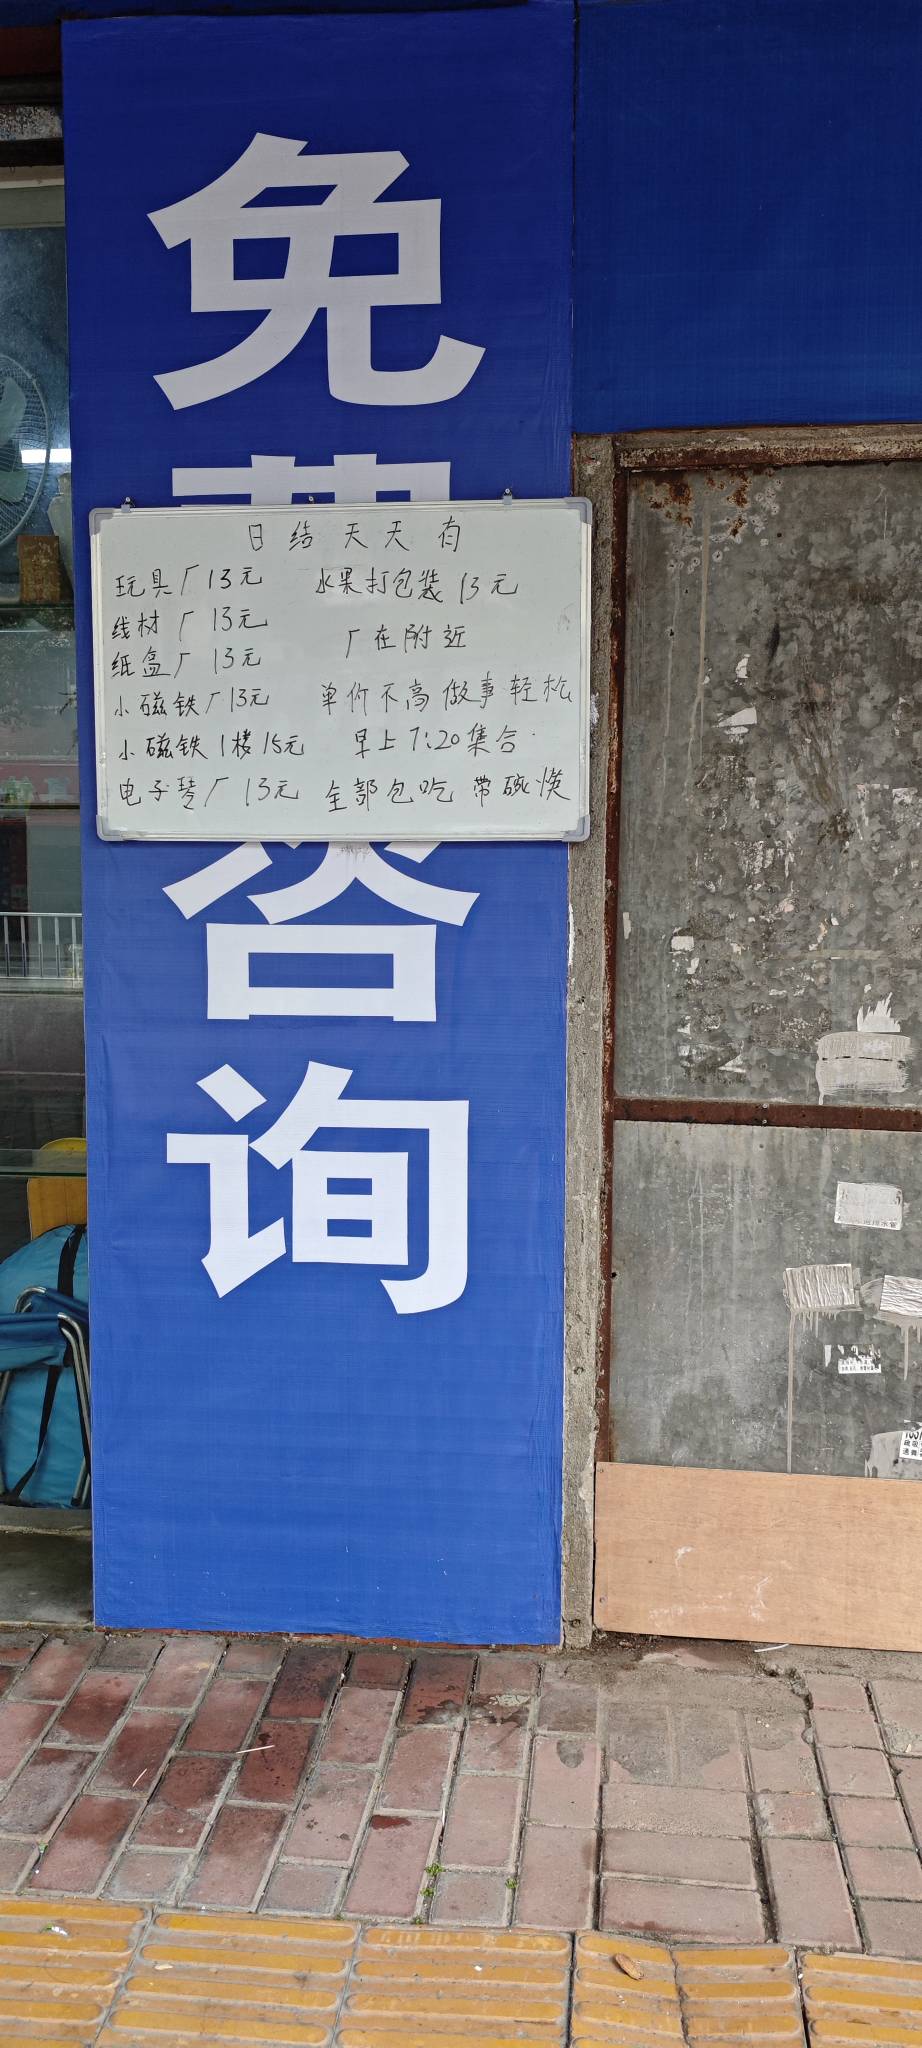 免
日结天天有
玩具厂13元
线材厂13元
纸盒厂13元
小磁铁厂13元
小磁铁1楼15元
电子琴厂13元
水果打包装13元
厂在附近
单价不高做事轻松
早上7:20集合
全部包吃带碗筷
咨
询